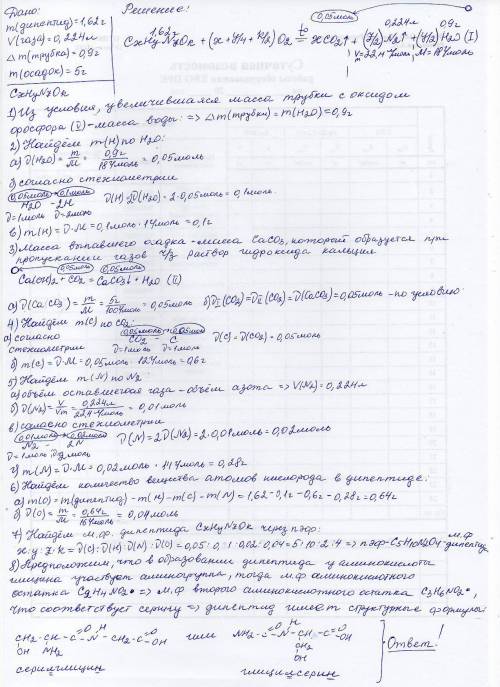 Дано:
m(дипептид)=1,62г
V(газа)=0,224л
Δm(трубка)=0,9г
m(осадок)=5г
CxHyNzOk
Решение:
0,05моль
1,62г 0,224л 0,9г
CxHyNzOk + (x+y/4+k/2)O2 t°→ xCO2↑ + (z/2)N2↑ + (y/2)H2O (I)
Vm=22,4 л/моль M=18г/моль
1) Из условия, увеличившаяся масса трубки с оксидом
фосфора (V) - масса воды: => Δm(трубки)=m(H2O)=0,9г
2) Найдём m(H) по H2O:
а) ν(H2O)=m/M=0,9г/18г/моль=0,05моль
б) согласно стехиометрии
0,05моль 0,1моль
H2O - 2H ν(H)=2ν(H2O)=2·0,05моль=0,1моль
ν=1моль ν=2моль
в) m(H)=ν·M=0,1моль·1г/моль=0,1г
3) Масса выпавшего осадка - масса CaCO3, который образуется при
пропускании газов ч/з раствор гидроксида кальция
0,05моль 0,05моль
Ca(OH)2 + CO2 = CaCO3↓ + H2O (II)
а) ν(CaCO3)=m/M=5г/100г/моль=0,05моль б) νI(CO2)=νII(CO2)=ν(CaCO3)=0,05моль - по условию
4) Найдём m(C) по CO2:
а) согласно 0,05моль 0,05моль
стехиометрии CO2 - C ν(C)=ν(CO2)=0,05моль
ν=1моль ν=1моль
б) m(C)=ν·M=0,05моль·12г/моль=0,6г
5) Найдём m(N) по N2
а) объём оставшегося газа - объём азота => V(N2)=0,224л
б) ν(N2)=V/Vm=0,224л/22,4л/моль=0,01моль
в) согласно стехиометрии
0,01моль 0,02моль
N2 - 2N ν(N)=2ν(N2)=2·0,01моль=0,02моль
ν=1моль ν=2моль
г) m(N)=ν·M=0,02моль·14г/моль=0,28г
6) Найдём количество вещества атомов кислорода в дипептиде:
а) m(O)=m(дипептид)-m(H)-m(C)-m(N)=1,62-0,1г-0,6г-0,28г=0,64г
б) ν(O)=m/M=0,64г/16г/моль=0,04моль
7) Найдём м.ф. дипептида CxHyNzOk через пэф:
x:y:z:k=ν(C):ν(H):ν(N):ν(O)=0,05:0,1:0,02:0,04=5:10:2:4 => пэф-C5H10N2O4-м.ф. дипептид
8) Предположим, что в образовании дипептида у аминокислоты
глицина участвует аминогруппа, тогда м.ф аминокислотного
остатка C2H4NO2• => м.ф второго аминокислотного остатка C3H6NO2•,
что соответствует серину => дипептид имеет структурные формулы:
O H O O H O
CH2-CH-C-N-CH2-C-OH или NH2-C-N-CH-C-OH
OH NH2 CH2
OH
серилглицин глицилсерин
Ответ!